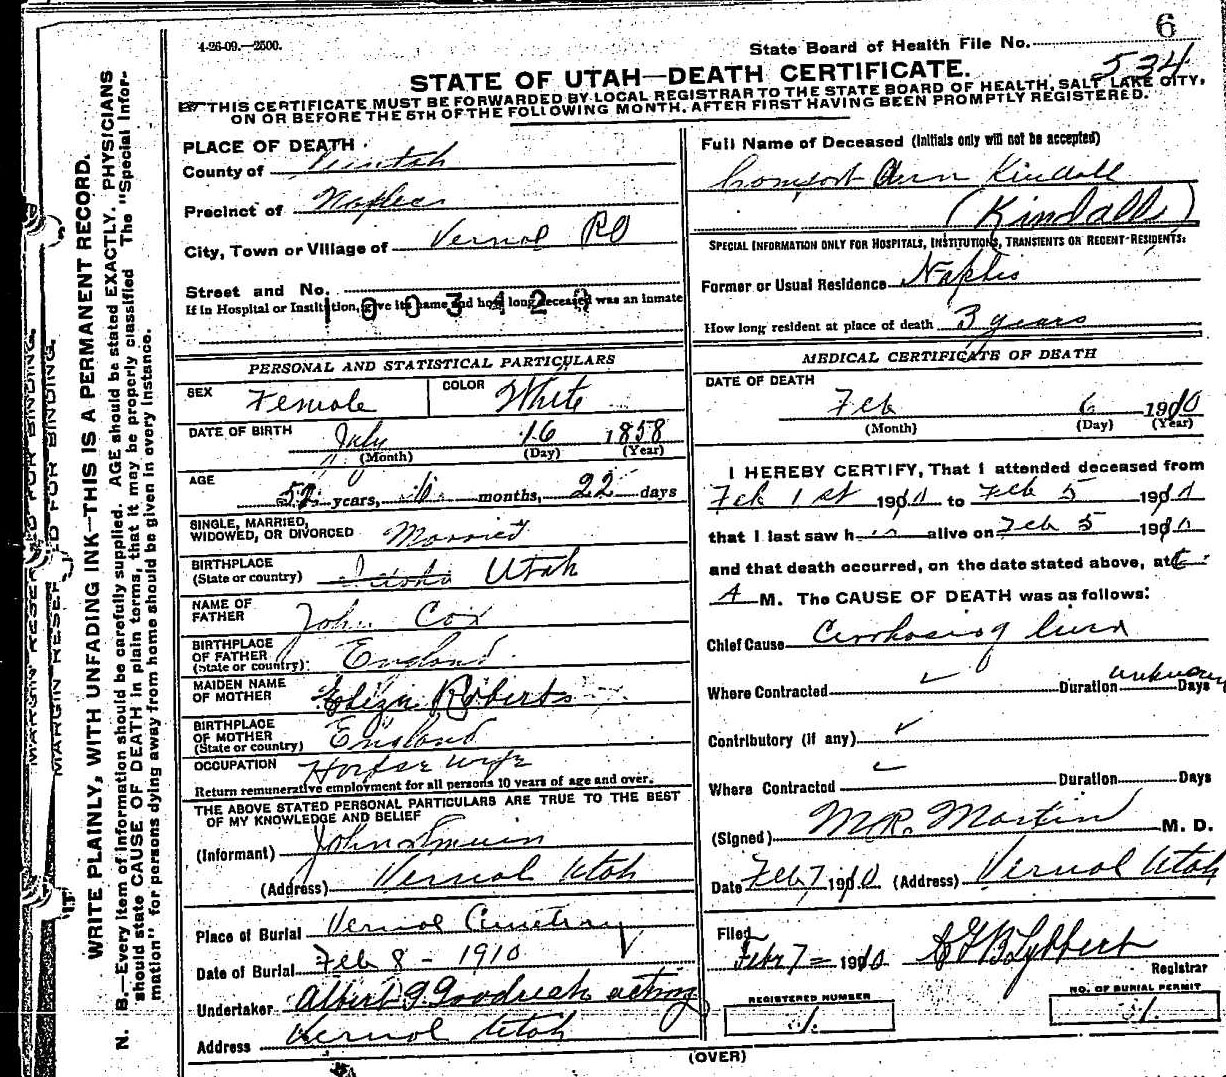 6
4-26-09.—2500.
State Board of Health File No.
534
STATE OF UTAH—DEATH CERTIFICATE.
THIS CERTIFICATE MUST BE FORWARDED BY LOCAL REGISTRAR TO THE STATE BOARD OF HEALTH, SALT LAKE CITY,
ON OR BEFORE THE 5TH OF THE FOLLOWING MONTH, AFTER FIRST HAVING BEEN PROMPTLY REGISTERED.
MARGIN RESERVED FOR BINDING.
MARGIN RESERVED FOR BINDING
WRITE PLAINLY, WITH UNFADING INK—THIS IS A PERMANENT RECORD.
N. B.—Every item of information should be carefully supplied. AGE should be stated EXACTLY. PHYSICIANS
should state CAUSE OF DEATH in plain terms, that it may be properly classified The "Special Infor-
mation" for persons dying away from home should be given in every instance.
PLACE OF DEATH
County of Uintah
Precinct of Naples
City, Town or Village of Vernal RD
Street and No.
If in Hospital or Institution, give its name and how long deceased was an inmate
1 0 0 3 4 2
PERSONAL AND STATISTICAL PARTICULARS
SEX Female COLOR White
DATE OF BIRTH July 16 1858
(Month) (Day) (Year)
AGE years, months, 22 days
SINGLE, MARRIED,
WIDOWED, OR DIVORCED Married
BIRTHPLACE
(State or country) Utah
NAME OF
FATHER John Cox
BIRTHPLACE
OF FATHER
(State or country) England
MAIDEN NAME
OF MOTHER Eliza Roberts
BIRTHPLACE
OF MOTHER
(State or country) England
OCCUPATION House wife
Return remunerative employment for all persons 10 years of age and over.
THE ABOVE STATED PERSONAL PARTICULARS ARE TRUE TO THE BEST
OF MY KNOWLEDGE AND BELIEF
(Informant) John
(Address) Vernal Utah
Place of Burial Vernal Cemetery
Date of Burial Feb 8 - 1910
Undertaker Albert G Goodrich acting
Address Vernal Utah
Full Name of Deceased (Initials only will not be accepted)
Comfort Ann Kindall
(Kindall)
SPECIAL INFORMATION ONLY FOR HOSPITALS, INSTITUTIONS, TRANSIENTS OR RECENT RESIDENTS:
Former or Usual Residence Naples
How long resident at place of death 3 years
MEDICAL CERTIFICATE OF DEATH
DATE OF DEATH
Feb 6 1910
(Month) (Day) (Year)
I HEREBY CERTIFY, That I attended deceased from
Feb 1st 1910 to Feb 5 1910
that I last saw h alive on Feb 5 1910
and that death occurred, on the date stated above, at
A M. The CAUSE OF DEATH was as follows:
Chief Cause Cirrhosis of liver
Where Contracted Duration unknown Days
Contributory (if any)
Where Contracted Duration Days
(Signed) M.R. Martin M. D.
Date Feb 7 1910 (Address) Vernal Utah
Filed
Febr 7 = 1910 Lybbert
Registrar
REGISTERED NUMBER
NO. OF BURIAL PERMIT
(OVER)